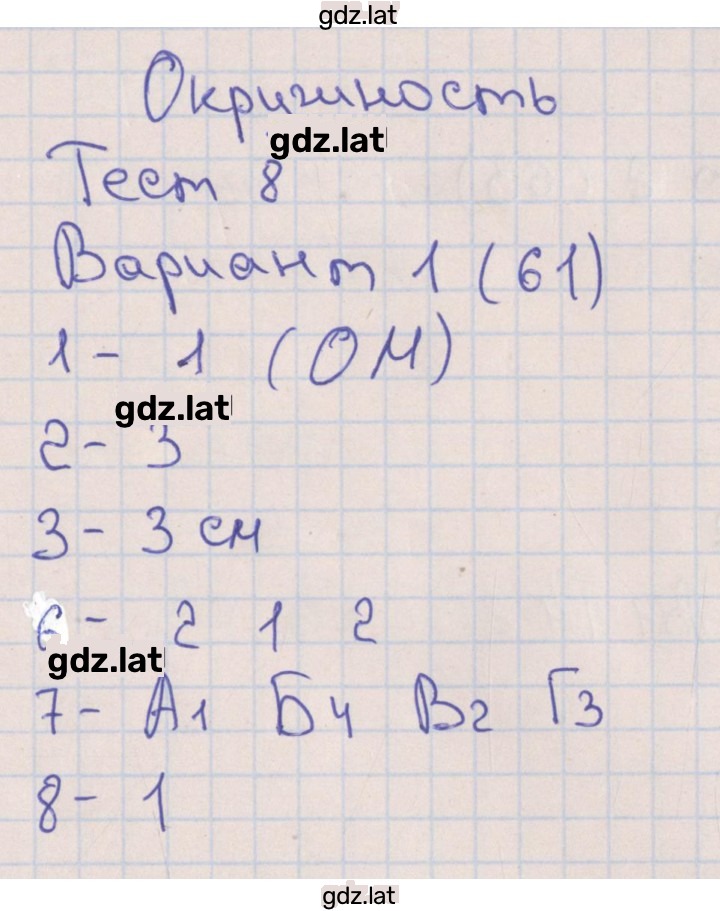 gdz.lat
Окружность
gdz.lat
Тест 8
Вариант 1 (61)
1 - 1 (ОМ)
gdz.lat
2 - 3
3 - 3 см
6 - 2 1 2
gdz.lat
7 - А1 Б4 В2 Г3
8 - 1
gdz.lat